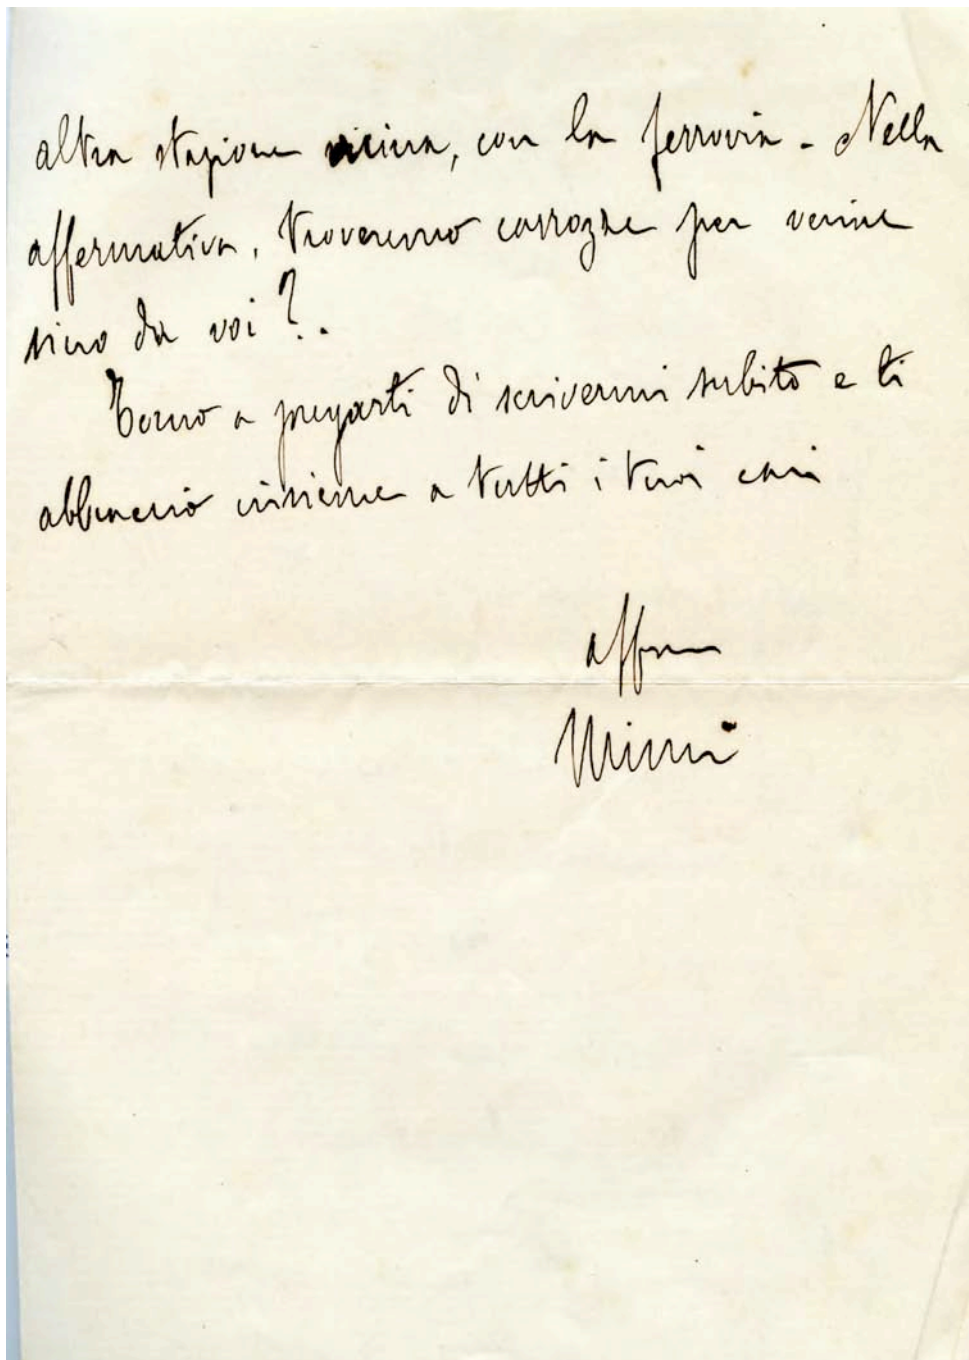 altra stazione vicina, con la ferrovia - Nella
affermativa, troveremo carrozze per venire
sino da voi?.
Torno a pregarti di scrivermi subito e ti
abbraccio insieme a tutti i tuoi cari
affmo
Mimì